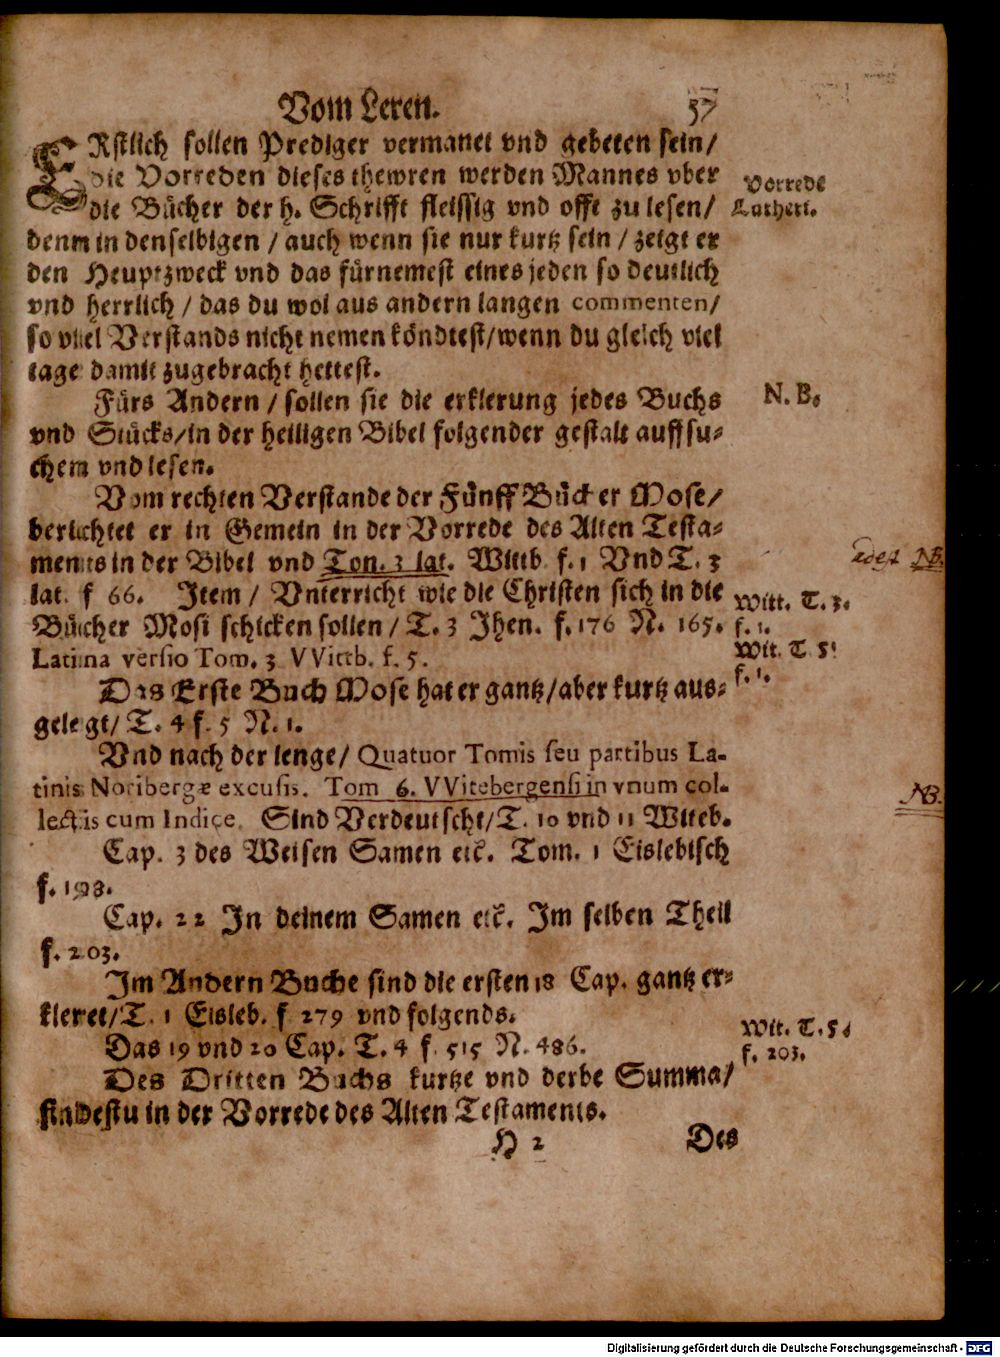 Vom Leren. 57
ERstlich sollen Prediger vermanet vnd gebeten sein/
die Vorreden dieses thewren werden Mannes vber
die Bücher der h. Schrifft fleissig vnd offt zu lesen/
Vorrede
Lutheri.
denn in denselbigen / auch wenn sie nur kurtz sein / zeigt er
den Heuptzweck vnd das fürnemest eines jeden so deutlich
vnd herrlich / das du wol aus andern langen commenten/
so viel Verstands nicht nemen köndtest/wenn du gleich viel
tage damit zugebracht hettest.
Fürs Andern / sollen sie die erklerung jedes Buchs
N. B.
vnd Stücks/in der heiligen Bibel folgender gestalt auffsu-
chen vnd lesen.
Vom rechten Verstande der Fünff Bücher Mose/
berichtet er in Gemein in der Vorrede des Alten Testa-
ments in der Bibel vnd Ton. 3 lat. Wittb. f. 1 Vnd T. 3
NB.
lat. f 66. Item / Vnterricht wie die Christen sich in die
Bücher Mosi schicken sollen / T. 3 Jhen. f. 176 N. 165.
Witt. T. 3.
f. 1.
Wit. T. 5.
f. 1.
Latina versio Tom. 3 VVittb. f. 5.
Das Erste Buch Mose hat er gantz/aber kurtz aus-
gelegt/ T. 4 f. 5 N. 1.
Vnd nach der lenge/ Quatuor Tomis seu partibus La-
tinis Noribergæ excusis. Tom 6. VVitebergensi in vnum col-
lectis cum Indice. Sind Verdeutscht/T. 10 vnd 11 Witeb.
NB.
Cap. 3 des Weisen Samen etc. Tom. 1 Eislebisch
f. 198.
Cap. 22 In deinem Samen etc. Im selben Theil
f. 203.
Im Andern Buche sind die ersten 18 Cap. gantz er-
kleret/T. 1 Eisleb. f 279 vnd folgends.
Das 19 vnd 20 Cap. T. 4 f. 515 N. 486.
Wit. T. 5.
f. 203.
Des Dritten Buchs kurtze vnd derbe Summa/
findestu in der Vorrede des Alten Testaments.
H 2 Des
Digitalisierung gefördert durch die Deutsche Forschungsgemeinschaft - DFG